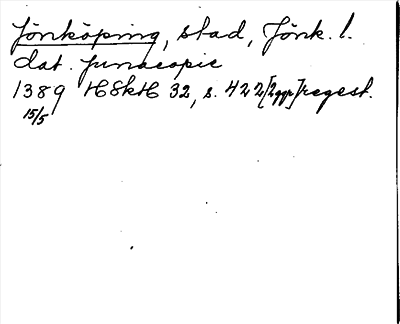 Jönköping, stad, Jönk. l.
dat. Junacopie
1389 HSkH 32, s. 422 [2ggr] regest.
15/5